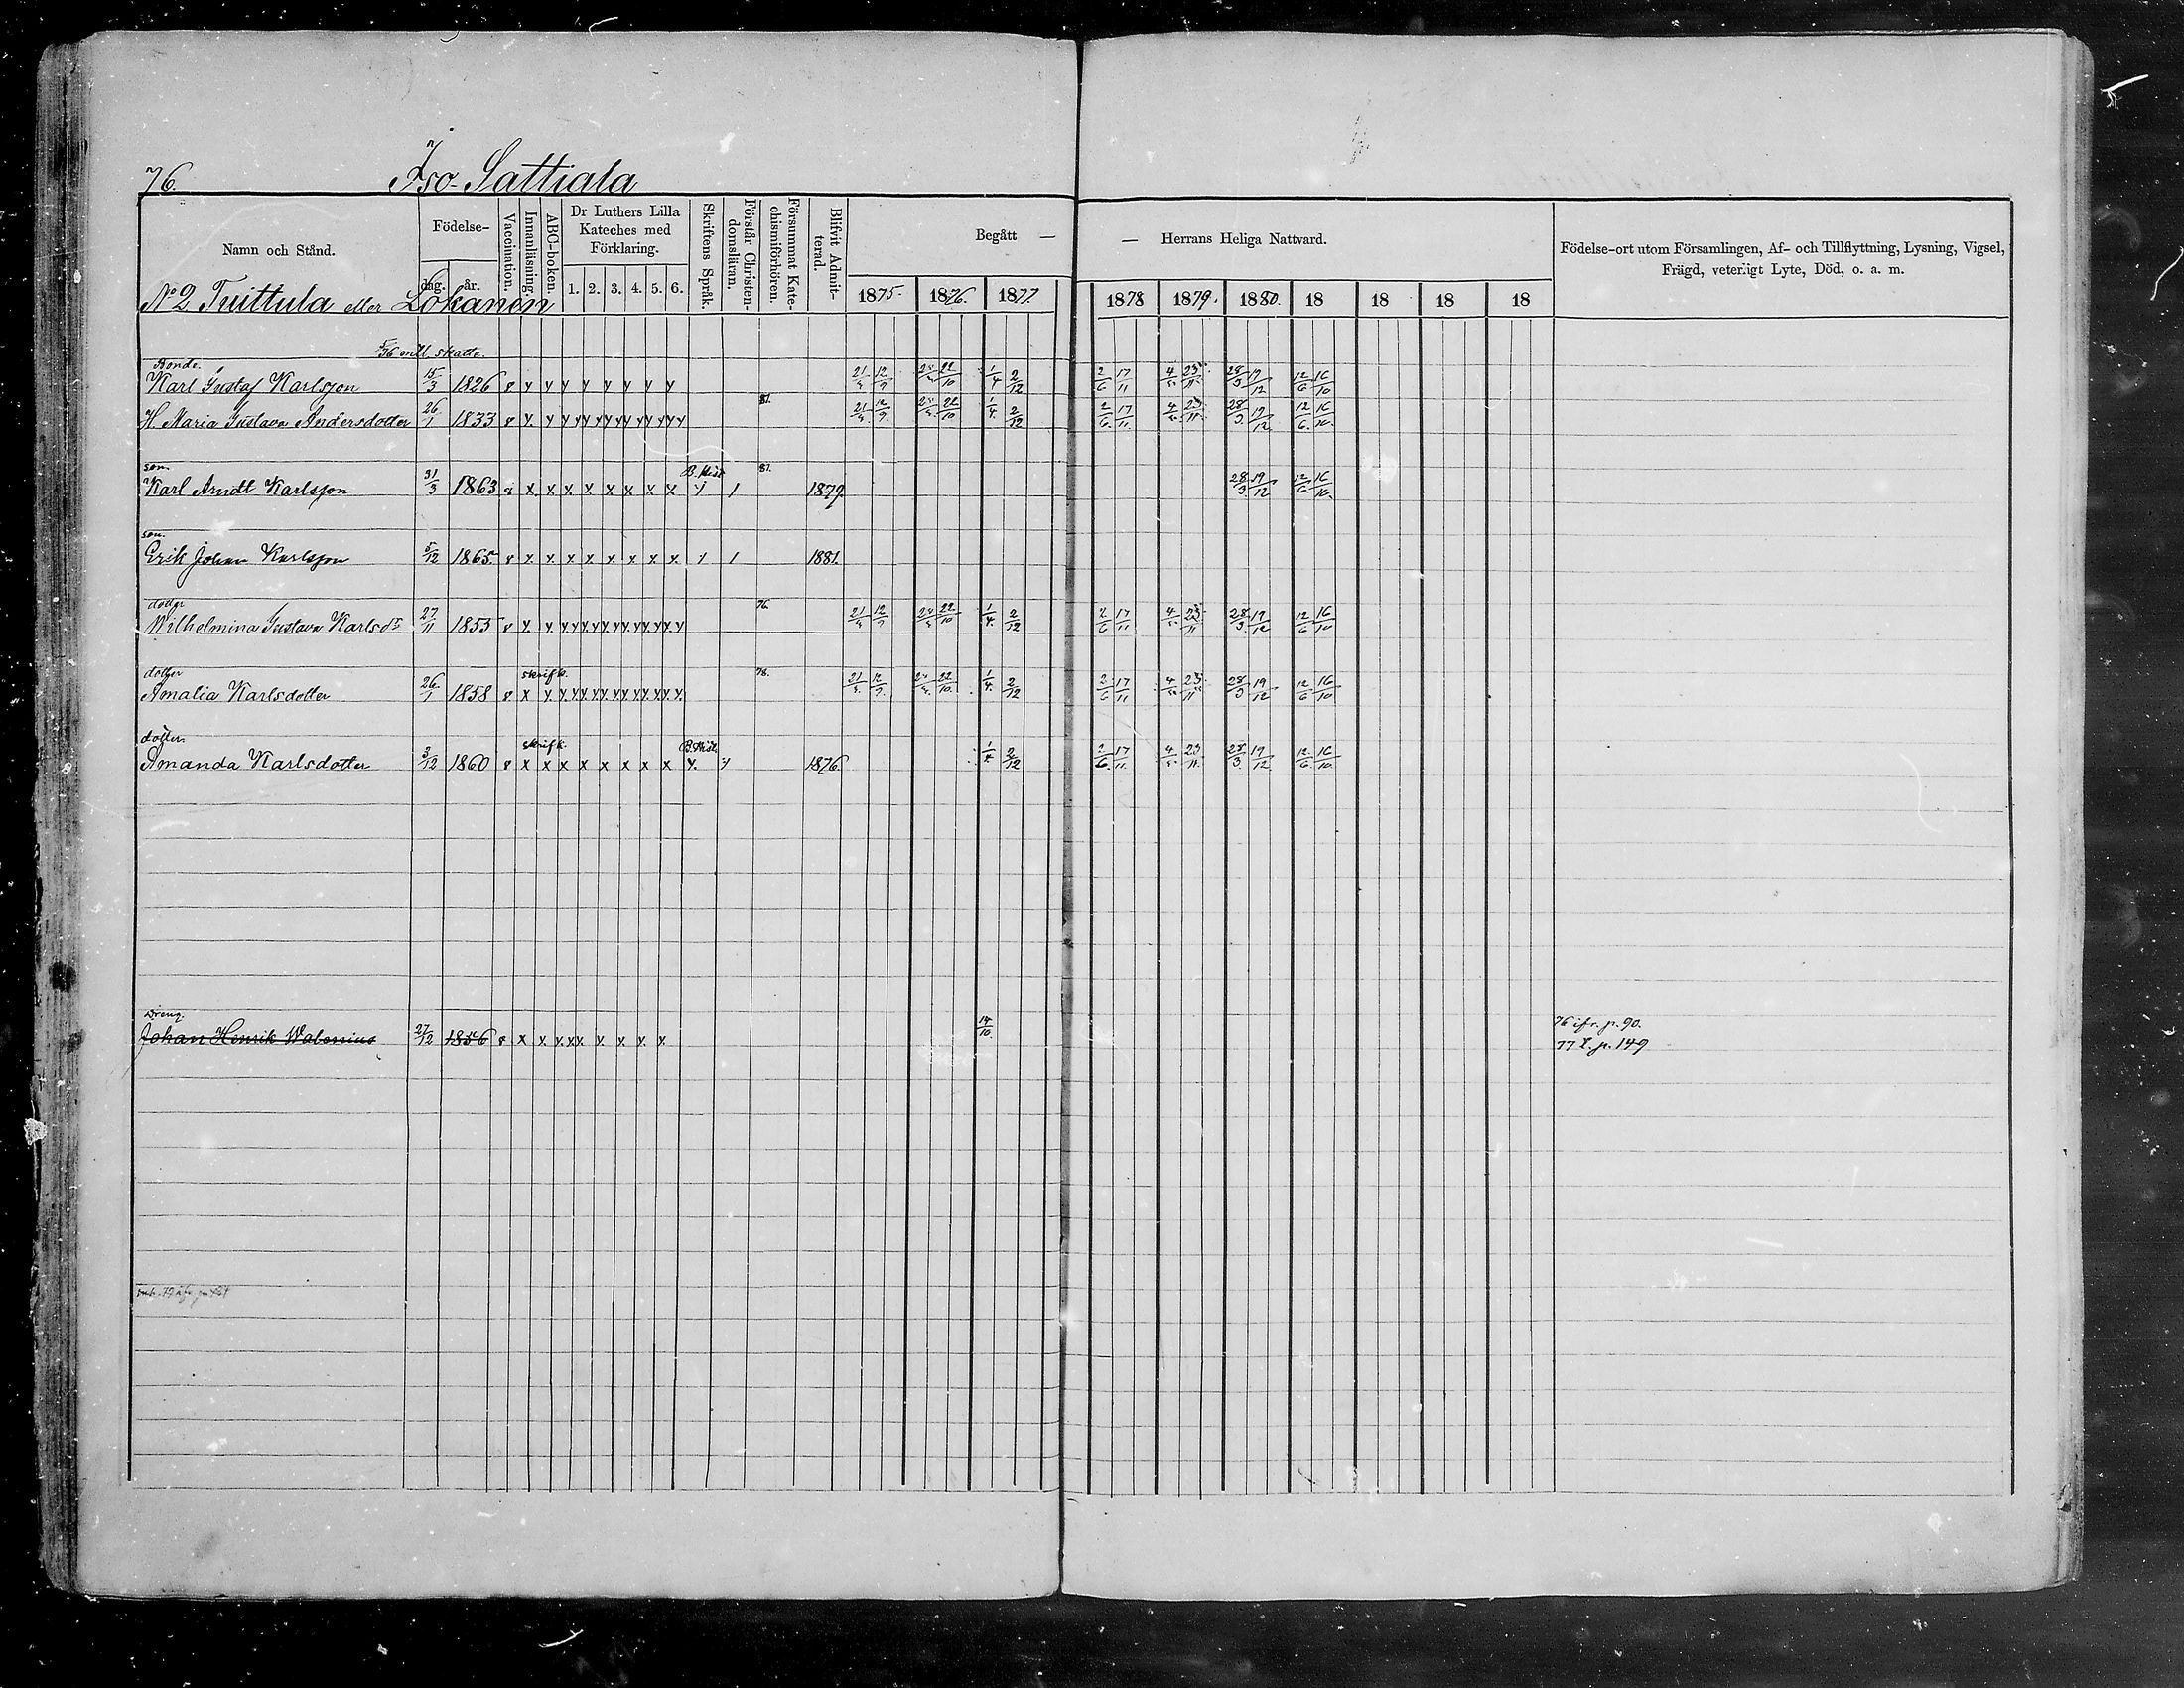 76.
Iso-Sattiala
Namn och Stånd.
Födelse-
dag. år.
Vaccination.
Innanläsning.
ABC-boken.
Dr Luthers Lilla
Kateches med
Förklaring.
1. 2. 3. 4. 5. 6.
Skriftens Språk.
Förstår Christen-
domsläran.
Försummat Kate-
chismiförhören.
Blifvit Admit-
terad.
Begått —
— Herrans Heliga Nattvard.
1875. 1876. 1877. 1878 1879. 1880. 18 18 18 18
Födelse-ort utom Församlingen, Af- och Tillflyttning, Lysning, Vigsel,
Frägd, veterligt Lyte, Död, o. a. m.
No 2 Tuittula eller Lokanen
5/36 mtl skatte.
Bonde.
Karl Gustaf Karlsson 15/3 1826 21/4 12/9 24/4 22/10 1/4 2/12 2/6 17/11 4/5 23/11 28/3 19/12 12/6 16/10
H. Maria Gustava Andersdotter 26/1 1833 81. 21/4 12/9 24/4 22/10 1/4 2/12 2/6 17/11 4/5 23/11 28/3 19/12 12/6 16/10
son. B. Hist 81.
Karl Arndt Karlsson 31/3 1863 1879. 28/3 19/12 12/6 16/10
son.
Erik Johan Karlsson 5/12 1865. 1881.
dotter 76.
Wilhelmina Gustava Karlsdr 27/11 1855 21/4 12/9 24/4 22/10 1/4 2/12 2/6 17/11 4/5 23/11 28/3 19/12 12/6 16/10
dotter skrifk. 78.
Amalia Karlsdotter 26/1 1858 21/4 12/9 24/4 22/10 1/4 2/12 2/6 17/11 4/5 23/11 28/3 19/12 12/6 16/10
dotter skrifk. B. Hist.
Amanda Karlsdotter 3/12 1860 1876. 1/4 2/12 2/6 17/11 4/5 23/11 28/3 19/12 12/6 16/10
Dreng.
Johan Henrik Walenius 27/12 1856 14/10 76 ifr. p. 90.
77 t. p. 149